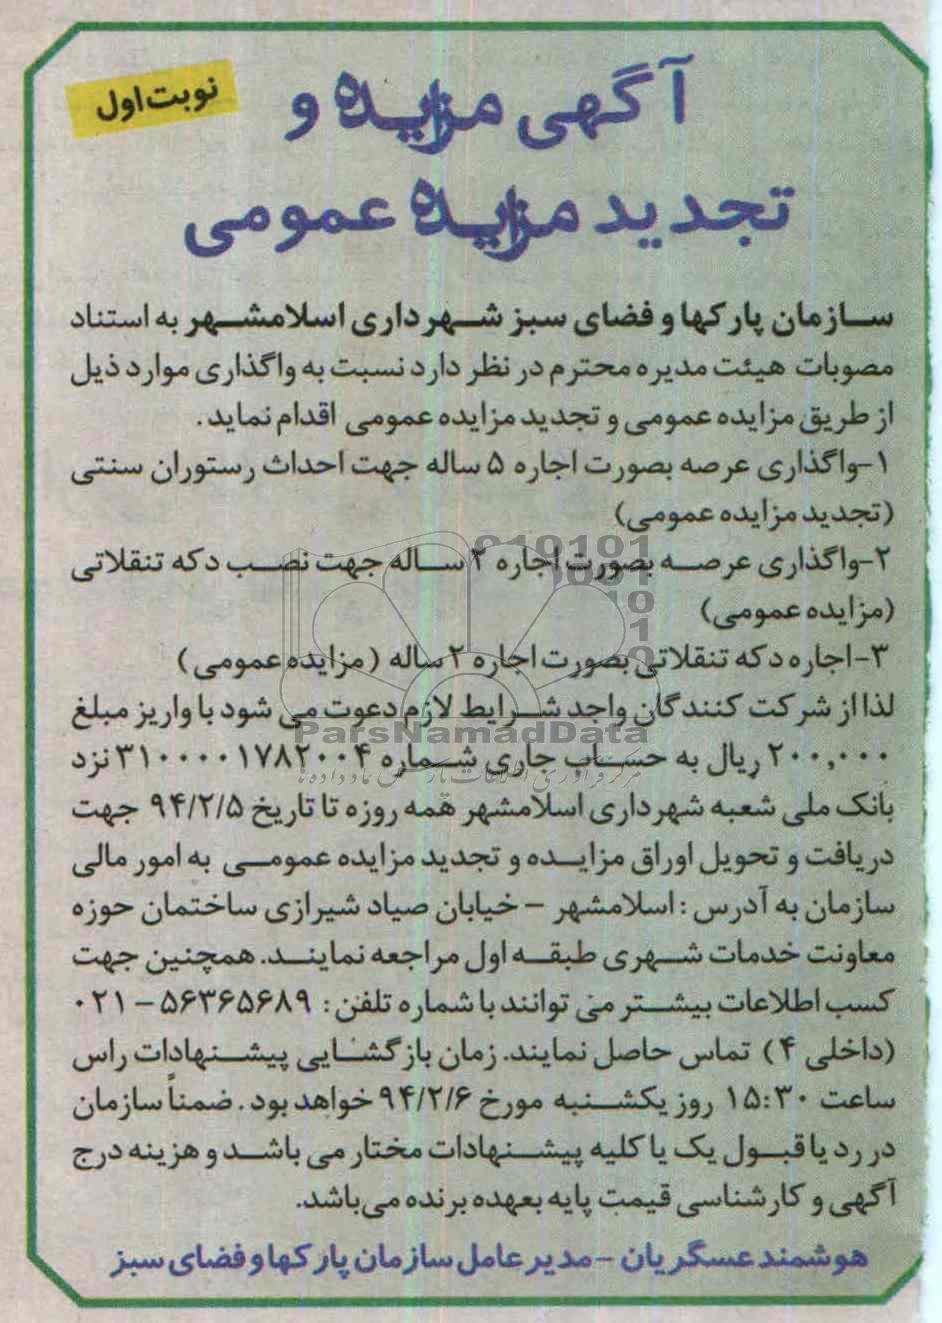 نوبت اول
آگهی مزایده و
تجدید مزایده عمومی
سازمان پارکها و فضای سبز شهرداری اسلامشهر به استناد
مصوبات هیئت مدیره محترم در نظر دارد نسبت به واگذاری موارد ذیل
از طریق مزایده عمومی و تجدید مزایده عمومی اقدام نماید.
۱-واگذاری عرصه بصورت اجاره ۵ ساله جهت احداث رستوران سنتی
(تجدید مزایده عمومی)
۲-واگذاری عرصه بصورت اجاره ۲ ساله جهت نصب دکه تنقلاتی
(مزایده عمومی)
۳-اجاره دکه تنقلاتی بصورت اجاره ۲ ساله (مزایده عمومی)
لذا از شرکت کنندگان واجد شرایط لازم دعوت می شود با واریز مبلغ
۲۰۰,۰۰۰ ریال به حساب جاری شماره ۳۱۰۰۰۰۱۷۸۲۰۰۴ نزد
بانک ملی شعبه شهرداری اسلامشهر همه روزه تا تاریخ ۹۴/۲/۵ جهت
دریافت و تحویل اوراق مزایده و تجدید مزایده عمومی به امور مالی
سازمان به آدرس: اسلامشهر – خیابان صیاد شیرازی ساختمان حوزه
معاونت خدمات شهری طبقه اول مراجعه نمایند. همچنین جهت
کسب اطلاعات بیشتر می توانند با شماره تلفن: ۵۶۳۶۵۶۸۹ – ۰۲۱
(داخلی ۴) تماس حاصل نمایند. زمان بازگشایی پیشنهادات راس
ساعت ۱۵:۳۰ روز یکشنبه مورخ ۹۴/۲/۶ خواهد بود. ضمناً سازمان
در رد یا قبول یک یا کلیه پیشنهادات مختار می باشد و هزینه درج
آگهی و کارشناسی قیمت پایه بعهده برنده می‌باشد.
هوشمند عسگریان – مدیر عامل سازمان پارکها و فضای سبز
ParsNamadData